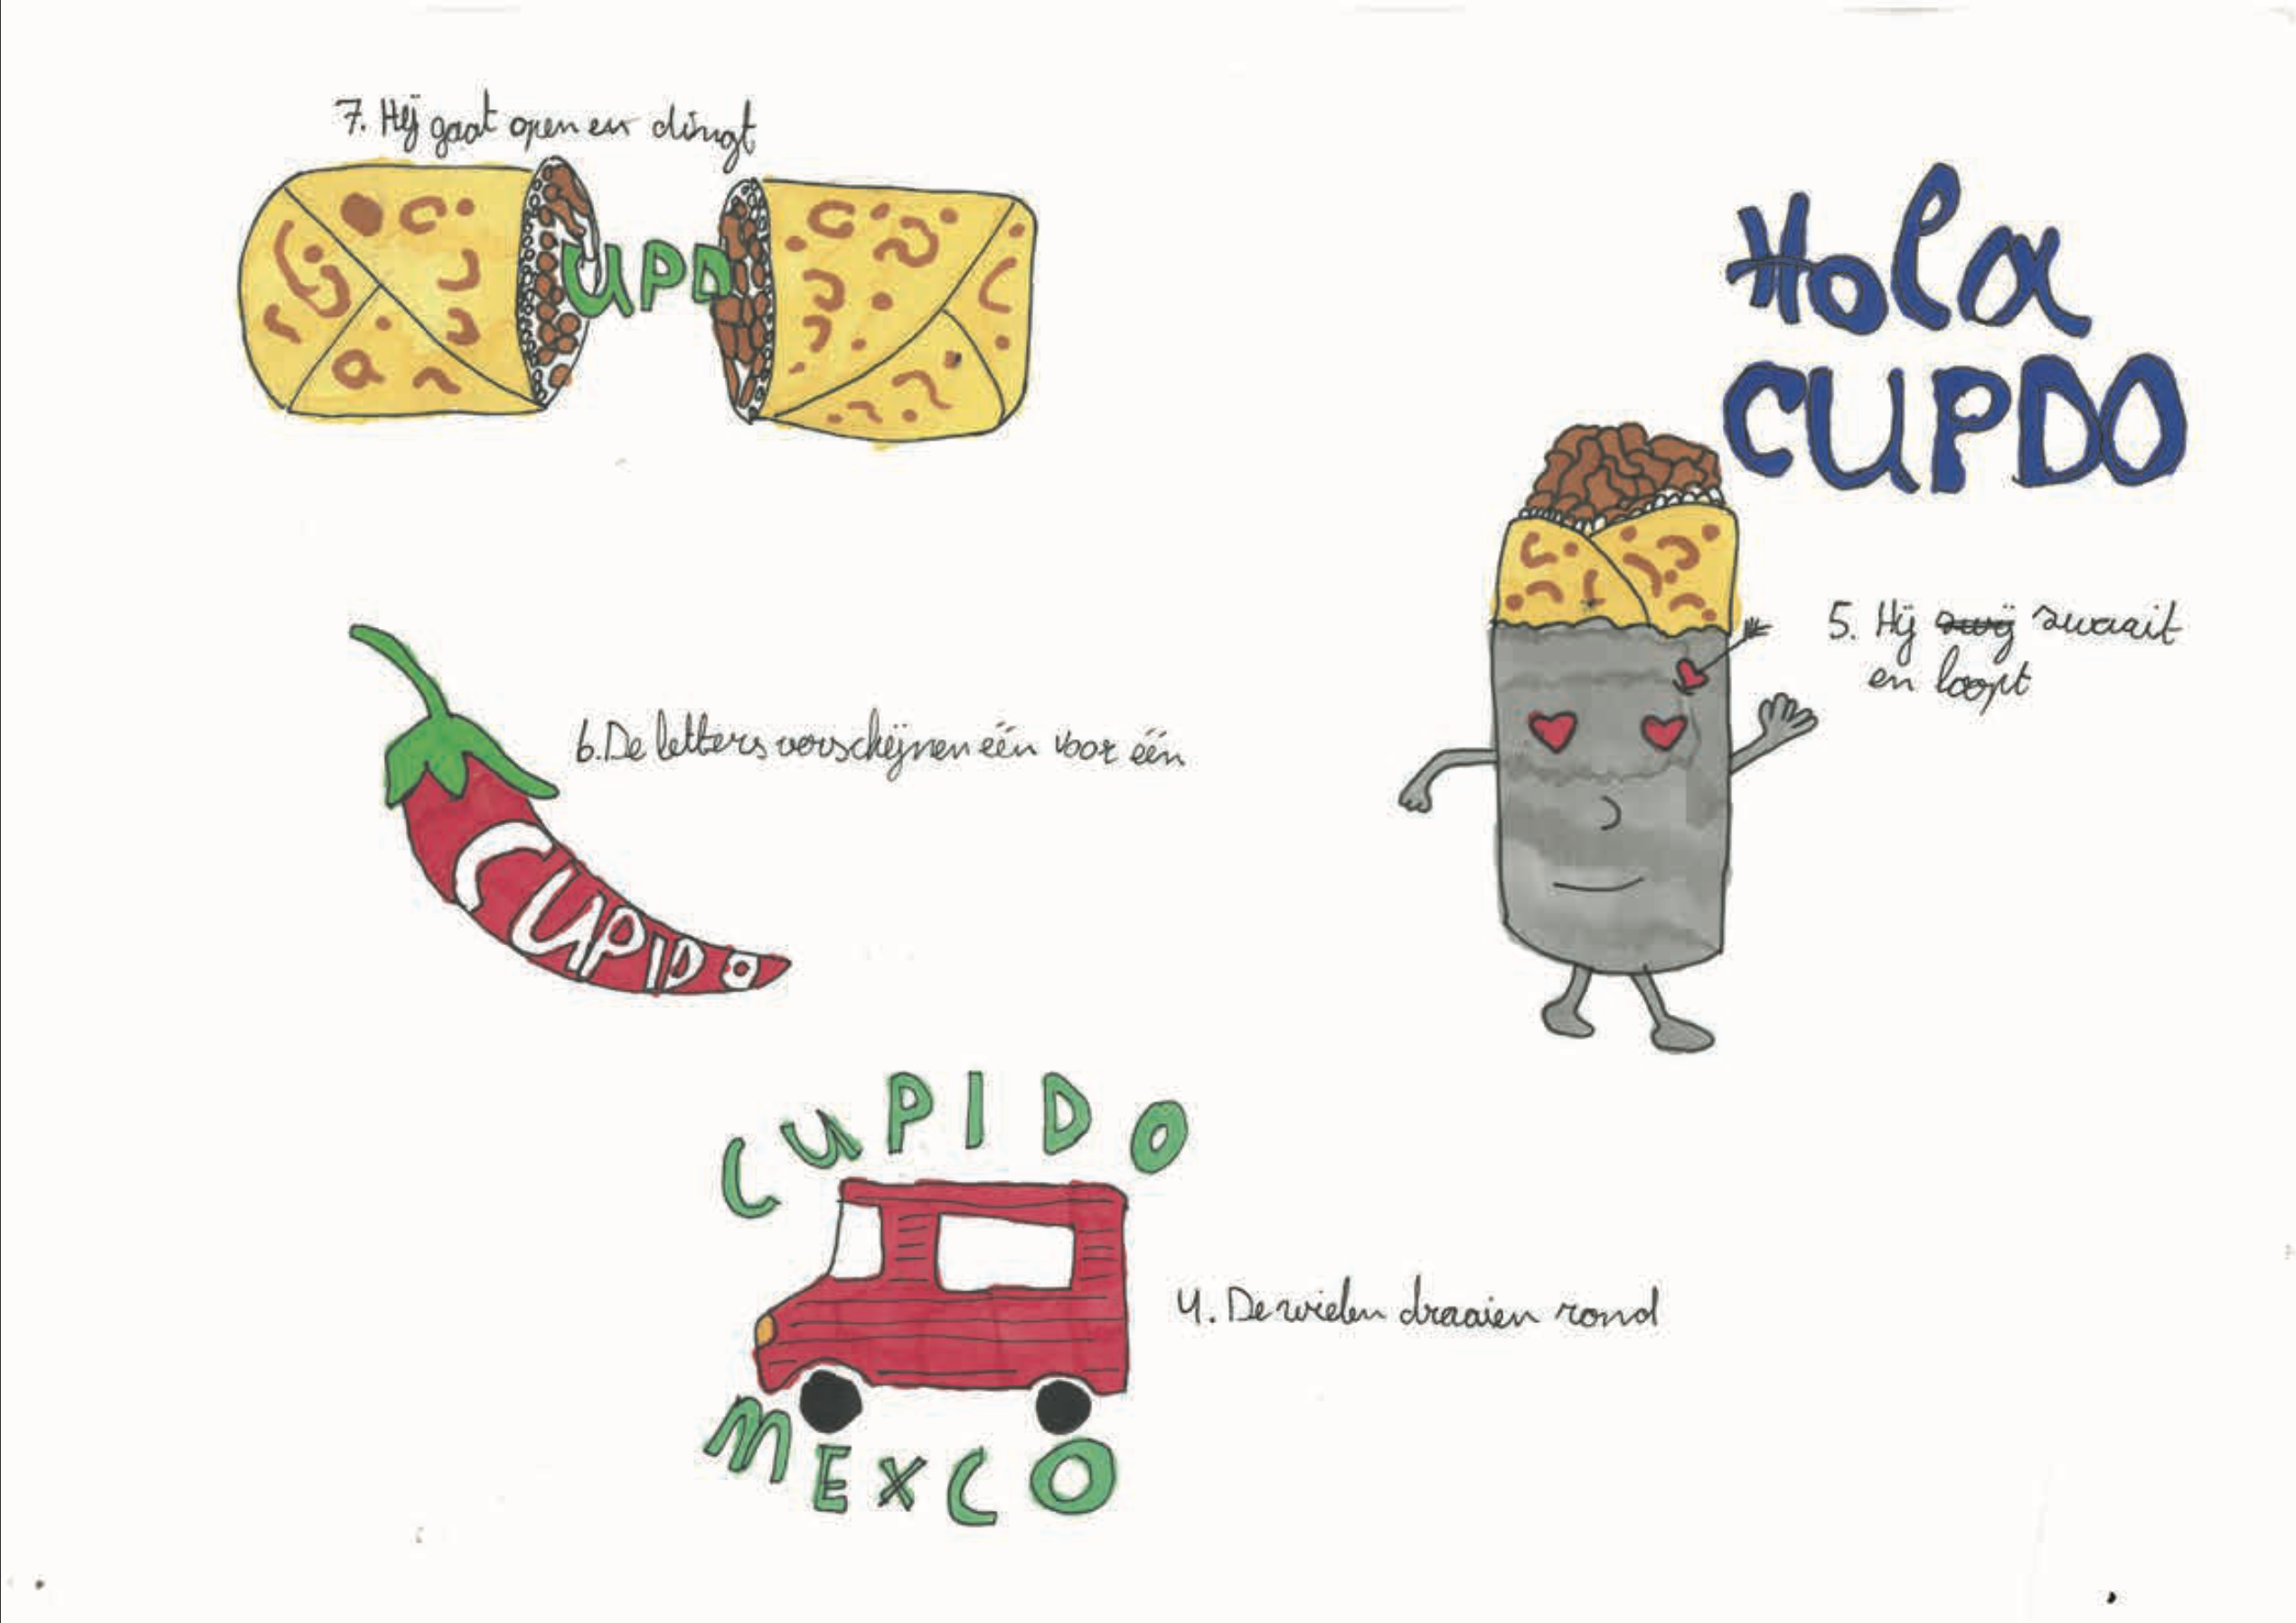 7. Hij gaat open en dingt
UPD
Hola
CUPDO
5. Hij zwaait
en loopt
6. De letters verschijnen één voor één
CUPIDO
CUPIDO
4. De wielen draaien rond
MEXCO